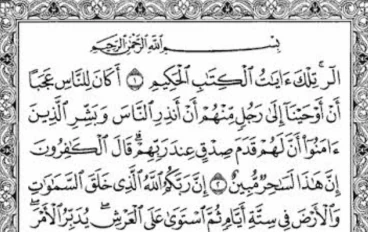 بِسْمِ ٱللَّهِ ٱلرَّحْمَٰنِ ٱلرَّحِيمِ
الٓر ۚ تِلْكَ ءَايَٰتُ ٱلْكِتَٰبِ ٱلْحَكِيمِ ١ أَكَانَ لِلنَّاسِ عَجَبًا
أَنْ أَوْحَيْنَآ إِلَىٰ رَجُلٍ مِّنْهُمْ أَنْ أَنذِرِ ٱلنَّاسَ وَبَشِّرِ ٱلَّذِينَ
ءَامَنُوٓا۟ أَنَّ لَهُمْ قَدَمَ صِدْقٍ عِندَ رَبِّهِمْ ۗ قَالَ ٱلْكَٰفِرُونَ
إِنَّ هَٰذَا لَسَٰحِرٌ مُّبِينٌ ٢ إِنَّ رَبَّكُمُ ٱللَّهُ ٱلَّذِى خَلَقَ ٱلسَّمَٰوَٰتِ
وَٱلْأَرْضَ فِى سِتَّةِ أَيَّامٍ ثُمَّ ٱسْتَوَىٰ عَلَى ٱلْعَرْشِ ۖ يُدَبِّرُ ٱلْأَمْرَ ۖ